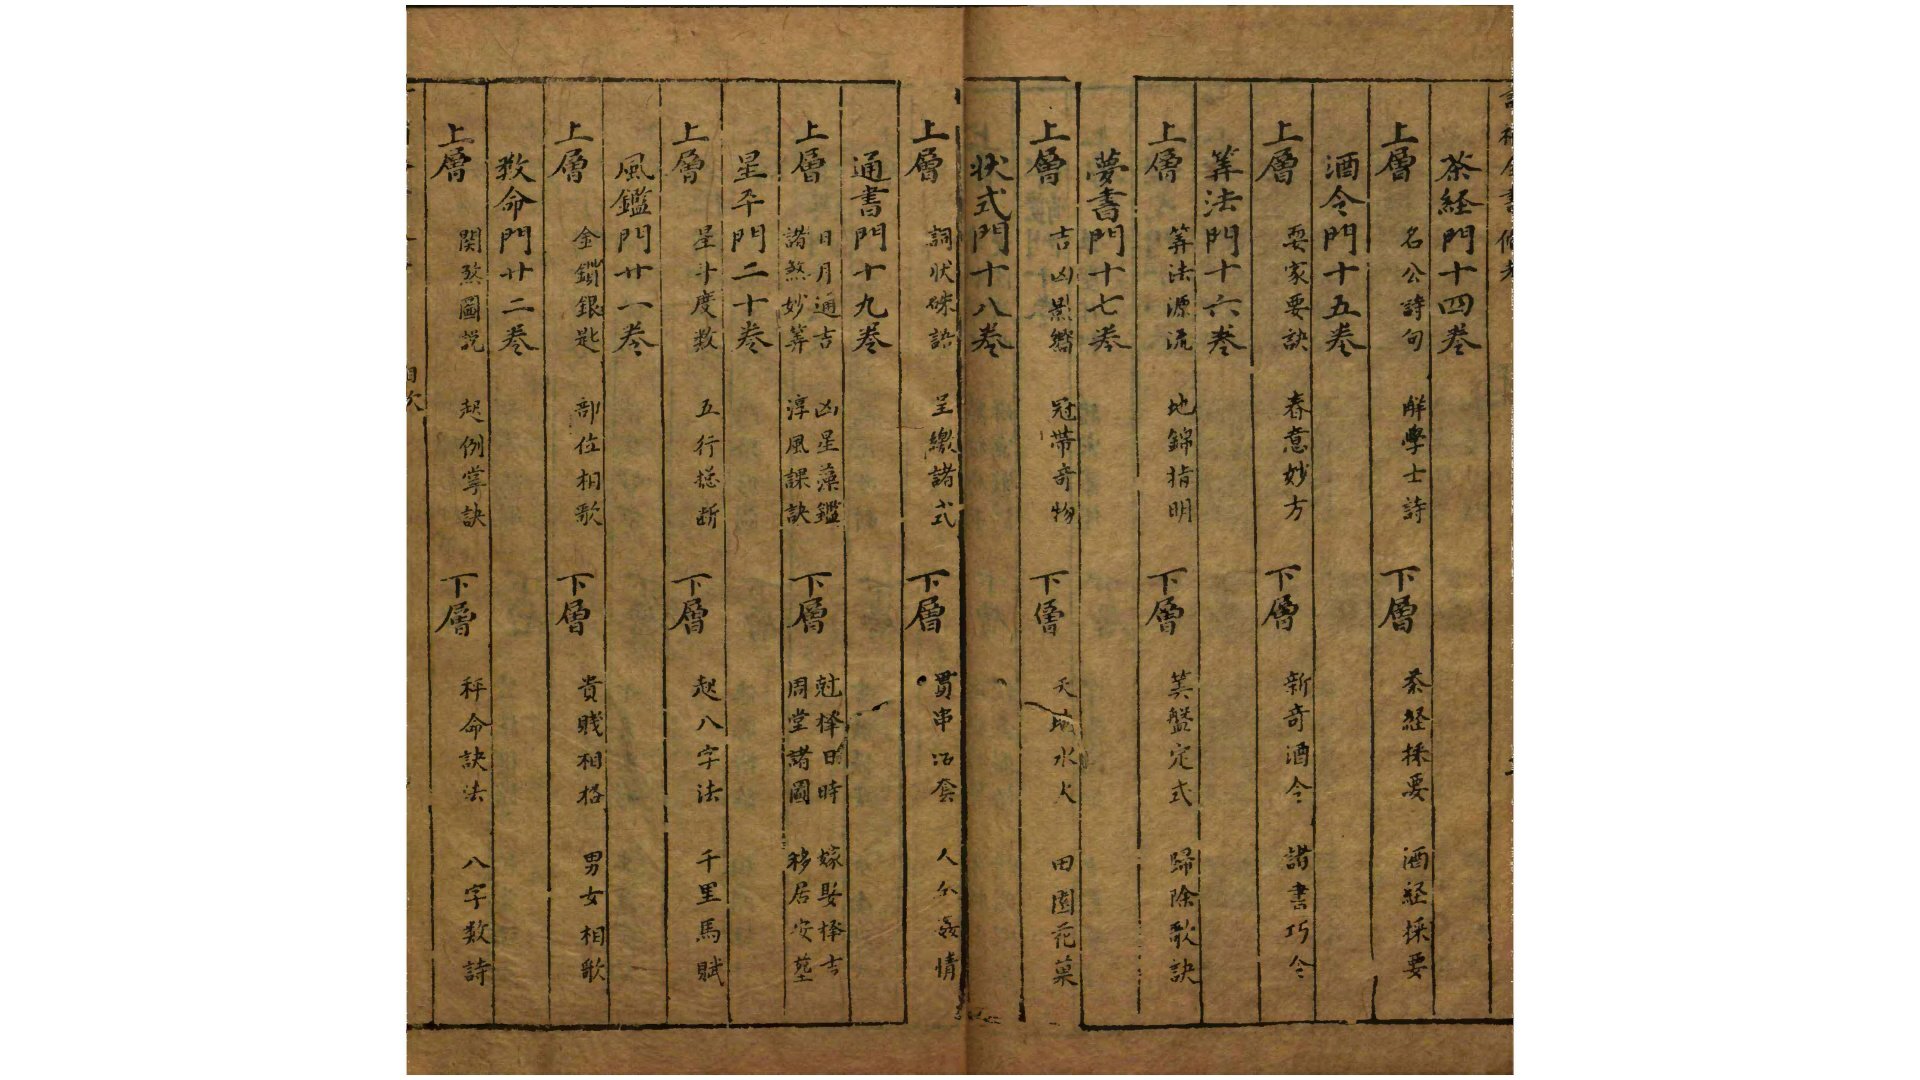 茶経門十四巻
上層 名公詩句 解學士詩 下層 茶経採要 酒経採要
酒令門十五巻
上層 耍家要訣 春意妙方 下層 新奇酒令 諸書巧令
筭法門十六巻
上層 筭法源流 地錦指明 下層 筭盤定式 歸除歌訣
夢書門十七巻
上層 吉凶影響 冠帯奇物 下層 天地水火 田園花菓
状式門十八巻
上層 詞状硃語 呈繳諸式 下層 貫串活套 人命姦情
通書門十九巻
上層 日月通吉 諸煞妙筭 凶星藻鑑 淳風課訣 下層 尅擇日時 周堂諸圖 嫁娶擇吉 移居安墓
星平門二十巻
上層 星斗度数 五行捴断 下層 起八字法 千里馬賦
風鑑門廿一巻
上層 金鎖銀匙 部位相歌 下層 貴賎相格 男女相歌
数命門廿二巻
上層 関煞圖説 起例掌訣 下層 秤命訣法 八字数詩
目次